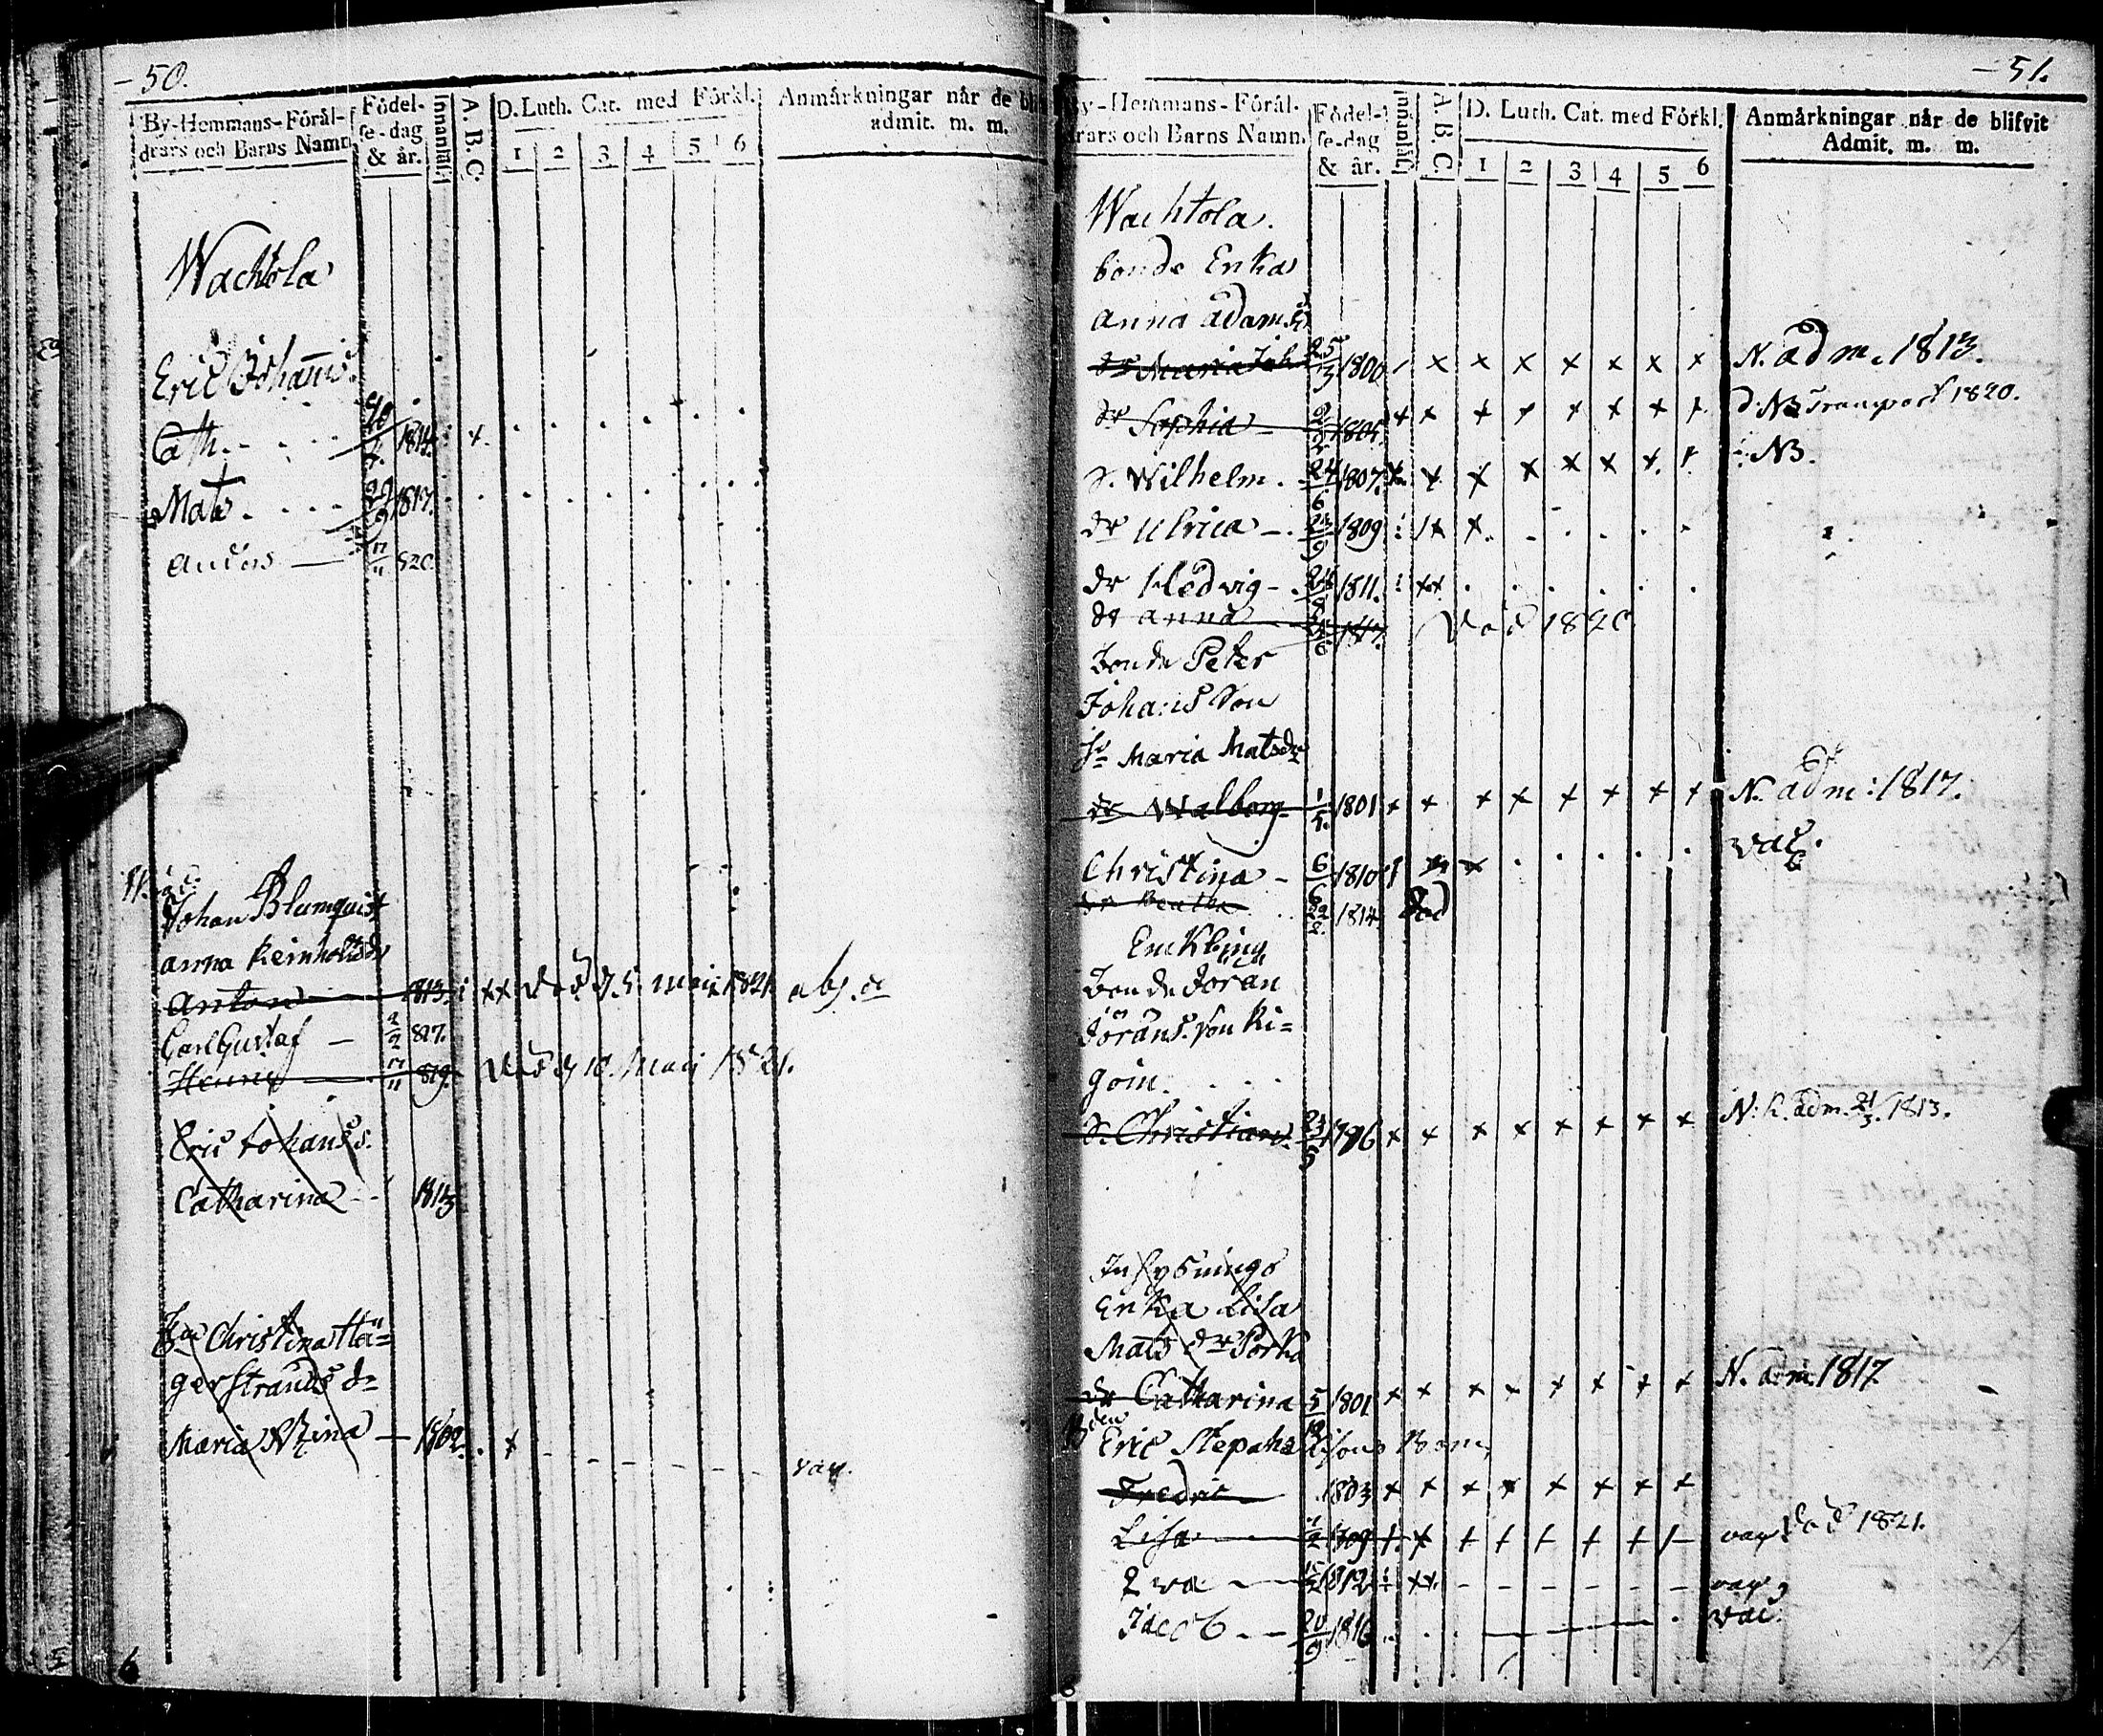 50.
By-Hemmans-Föräl-
drars och Barns Namn
Födel-
se-dag
& år.
Innanläs:
A. B. C.
D. Luth. Cat. med Förkl.
1 2 3 4 5 6
Anmärkningar når de
admit. m. m.
Wachtola
Eric Johans
Cath. 1814. x
Mats 1817.
Anders 11 820
Johan Blumquist
Anna Reinholdsdr
Anton 1813. xx död d 5 Maij 1821
Carl Gustaf 2/2 817.
Henric 11 819. död d 10. Maij 1821.
Eric Johanss.
Catharina 1813
Christina Hä=
gerstrands dr
Maria Stina 1802. x vag.
6
51.
By-Hemmans-Förål-
drars och Barns Namn.
Födel-
se-dag
& år.
Innanläs:
A. B. C.
D. Luth. Cat. med Förkl.
1 2 3 4 5 6
Anmårkningar når de blifvit
Admit. m. m.
Wachtola.
bonde Enka
Anna Adamsdr
dr Maria 25/3 1800 x x x x x x x N. adm. 1813.
dr Sophia 1805 x x x x x x x x NB Transport 1820.
S. Wilhelm 24/6 1807. x x x x x x x x NB.
dr Ulrica 1809 x x
dr Hedvig 1811. xx
dr Anna 1817. död 1820
Bonde Peter
Johans Son
Maria Matsdr
dr Walborg 1/5. 1801 x x x x x x x x N. adm: 1817.
Christina 6/6 1810 x x vac.
dr Beatha 22/2 1814 död
Enckling
Bonde Jöran
Jörans. son Ri=
goin
S. Christian 23/5 1796 x x x x x x x x N: k. adm. 21/3. 1813.
Inhysnings
Enka Lisa
Mats dr Porka
dr Catharina 5 1801 x x x x x x x x N. adm. 1817
Eric Stephansons Barn
Fredric 1803 x x x x x x x x
Lisa 1809 x x x x x x x vag död 1821.
Eva 1812 xx vag
Jacob 20/9 1816 vac.